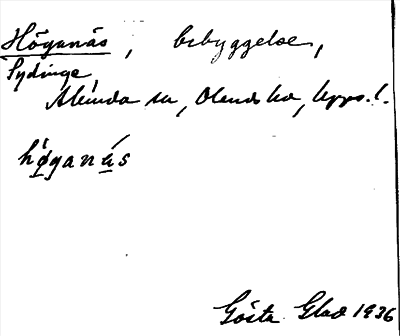 Höganäs, bebyggelse,
Sydinge,
Alunda sn, Olands hd, Upps. l.
höganäs
Gösta Glad 1936